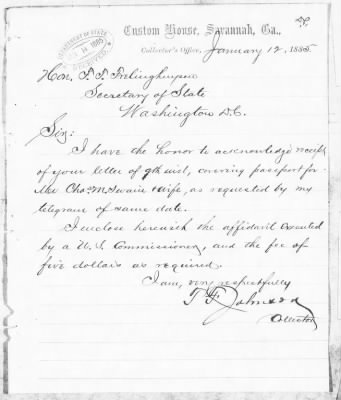 Custom House, Savannah, Ga.,
Collector's Office, January 12, 1885
DEPARTMENT OF STATE
JAN 14 1885
RECEIVED
Hon. F. T. Frelinghuysen
Secretary of State
Washington D.C.
Sir:
I have the honor to acknowledge receipt
of your letter of 9th inst, covering passport for
Mr Chas. M Swain & wife, as requested by my
telegram of same date.
I enclose herewith the affidavit executed
by a U.S. Commissioner, and the fee of
five dollars as required.
I am, very respectfully
T F Johnson
Collector